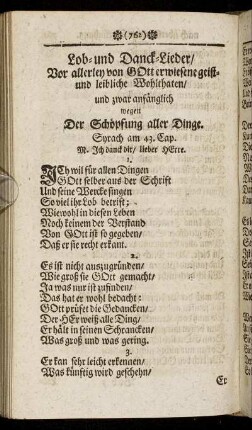 (762)
Lob- und Danck-Lieder/
Vor allerley von GOtt erwiesene geist-
und leibliche Wohlthaten/
und zwar anfänglich
wegen
Der Schöpfung aller Dinge.
Syrach am 43. Cap.
M. Ich danck dir/ lieber HErre.
1.
ICh wil für allen Dingen
GOtt selber aus der Schrift
Und seine Wercke singen
So viel ihr Lob betrift;
Wiewohl in diesen Leben
Noch keinem der Verstand
Von GOtt ist so gegeben/
Daß er sie recht erkant.
2.
Es ist nicht auszugründen/
Wie groß sie GOtt gemacht/
Ja was nur ist zu finden/
Das hat er wohl bedacht:
GOtt prüft die Gedancken/
Der HErr weiß alle Ding/
Er hält in seinen Schrancken/
Was groß und was gering.
3.
Er kan sehr leicht erkennen/
Was künftig wird geschehn/
Er